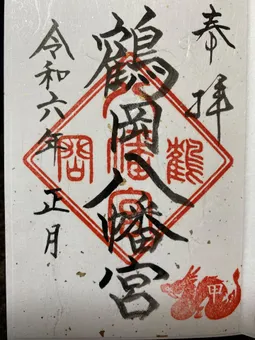 奉拝
鶴岡八幡宮
令和六年 正月
鶴
岡
甲